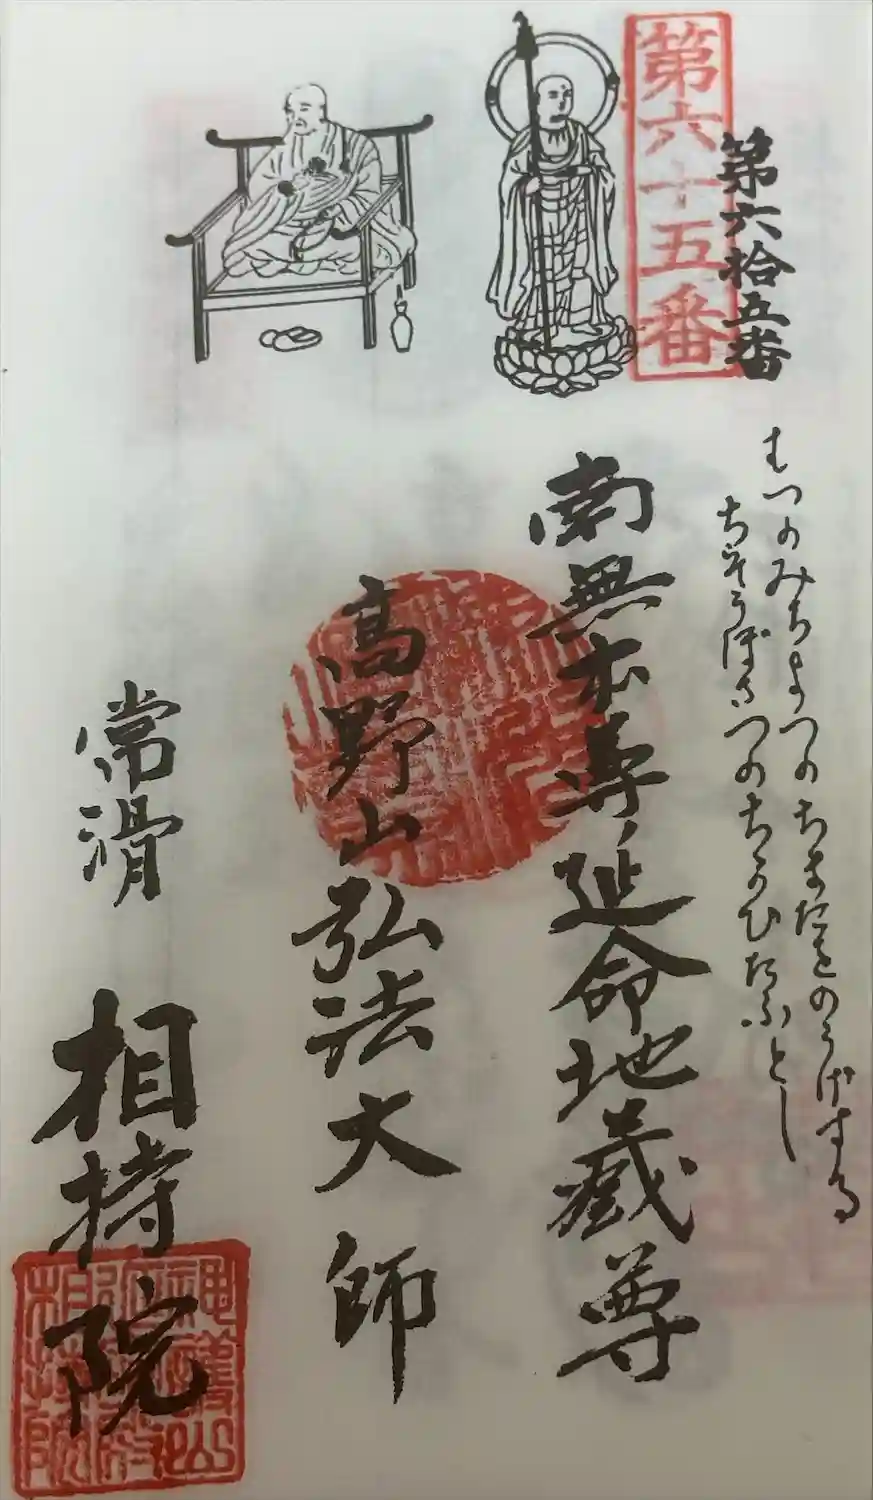 第六拾五番
第六十五番
むつのみちよつのちまたをのうげする
ちぞうぼさつのちかひたふとし
南無本尊延命地蔵尊
高野山弘法大師
常滑 相持院
神護山
相持院